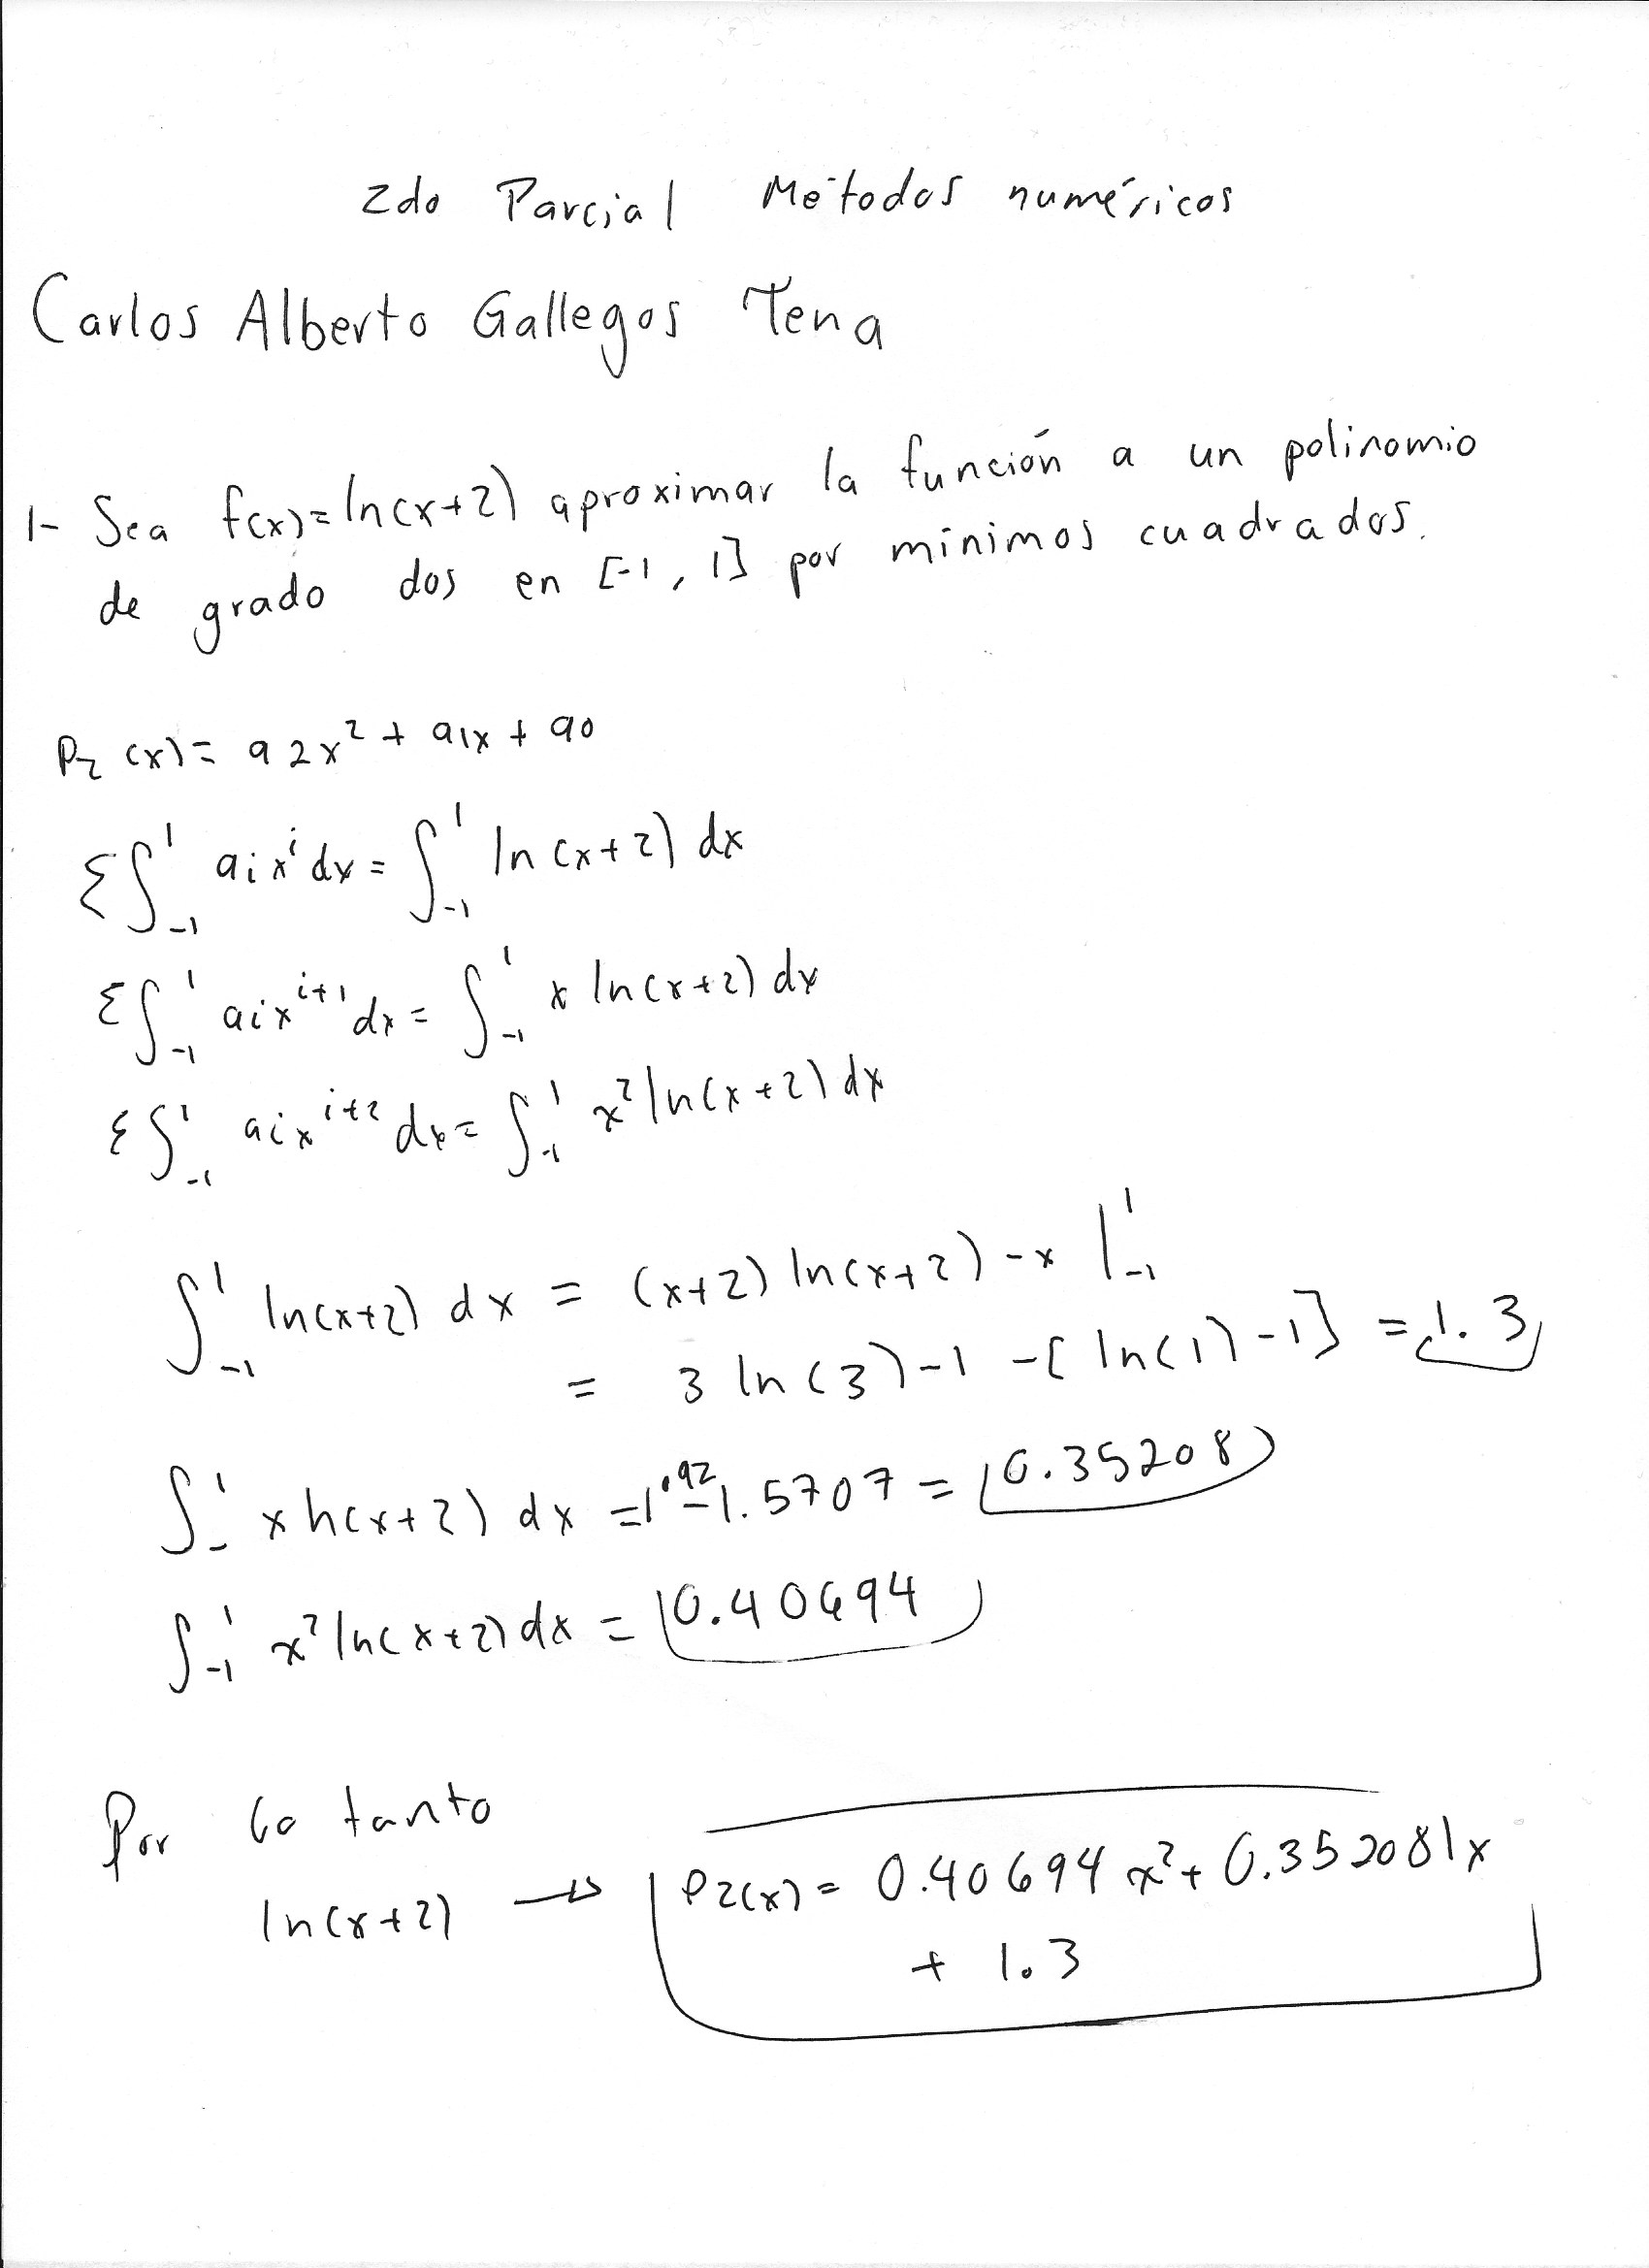 2do Parcial Métodos numéricos
Carlos Alberto Gallegos Tena
1- Sea f(x)=ln(x+2) aproximar la función a un polinomio
de grado dos en [-1, 1] por mínimos cuadrados.
P2 (x) = a2x² + a1x + a0
Σ∫₋₁¹ aixⁱ dx = ∫₋₁¹ ln(x+2) dx
Σ∫₋₁¹ aixⁱ⁺¹ dx = ∫₋₁¹ x ln(x+2) dx
Σ∫₋₁¹ aixⁱ⁺² dx = ∫₋₁¹ x² ln(x+2) dx
∫₋₁¹ ln(x+2) dx = (x+2) ln(x+2) - x |₋₁¹
= 3 ln(3) - 1 - [ln(1) - 1] = 1.3
∫₋¹ x ln(x+2) dx = 1.92 - 1.5707 = 0.35208
∫₋₁¹ x² ln(x+2) dx = 0.40694
Por lo tanto
ln(x+2) → P2(x) = 0.40694 x² + 0.352081x
+ 1.3